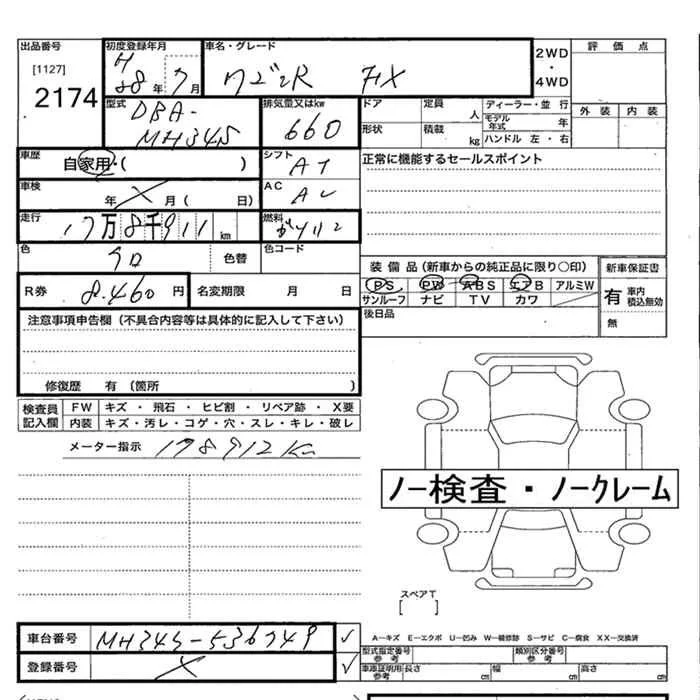 出品番号
[1127]
2174
初度登録年月
H 28年 7月
車名・グレード
ワゴンR FX
2WD
・
4WD
評価点
外装 内装
型式
DBA-
MH34S
排気量又はkw
660
ドア
定員
人
ディーラー・並行
モデル年式
年
形状
積載
kg
ハンドル 左・右
車歴
自家用・( )
シフト
AT
正常に機能するセールスポイント
車検
年 月( 日)
AC
走行
17万8千911 km
燃料
ガソリン
色
クロ
色替
色コード
装備品(新車からの純正品に限り○印)
新車保証書
PS PW ABS エアB アルミW
サンルーフ ナビ TV カワ
有 車内積込無効
無
R券
8.460 円
名変期限 月 日
後日品
注意事項申告欄(不具合内容等は具体的に記入して下さい)
修復歴 有(箇所 )
検査員
記入欄
FW キズ・飛石・ヒビ割・リペア跡・X要
内装 キズ・汚レ・コゲ・穴・スレ・キレ・破レ
メーター指示 178912Km
ノー検査・ノークレーム
スペアT
[ ]
車台番号 MH34S-536749 ✓
登録番号 ✓
A-キズ E-エクボ U-凹み W-補修跡 S-サビ C-腐食 XX-交換済
型式指定番号
参考
類別区分番号
参考
車庫証明用
参考
長さ cm 幅 cm 高さ cm